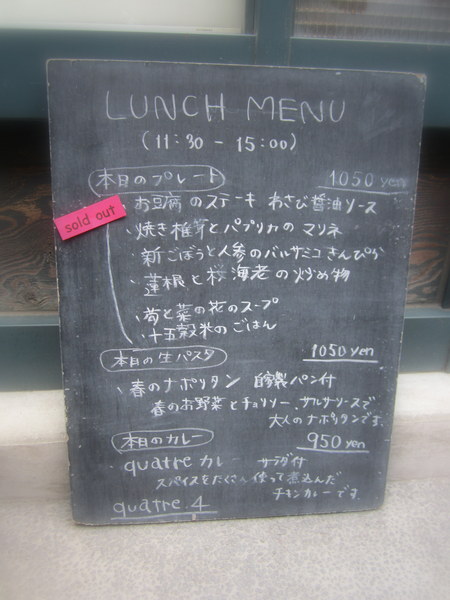 LUNCH MENU
(11:30 - 15:00)
本日のプレート 1050 yen
sold out
お豆腐のステーキ わさび醤油ソース
、焼き椎茸とパプリカのマリネ
、新ごぼうと人参のバルサミコきんぴら
、蓮根と桜海老の炒め物
、筍と菜の花のスープ
、十五穀米のごはん
本日の生パスタ 1050 yen
、春のナポリタン 自家製パン付
春のお野菜とチョリソー、サルサソースで
大人のナポリタンです。
本日のカレー 950 yen
quatreカレー サラダ付
スパイスをたくさん使って煮込んだ
チキンカレーです
quatre.4